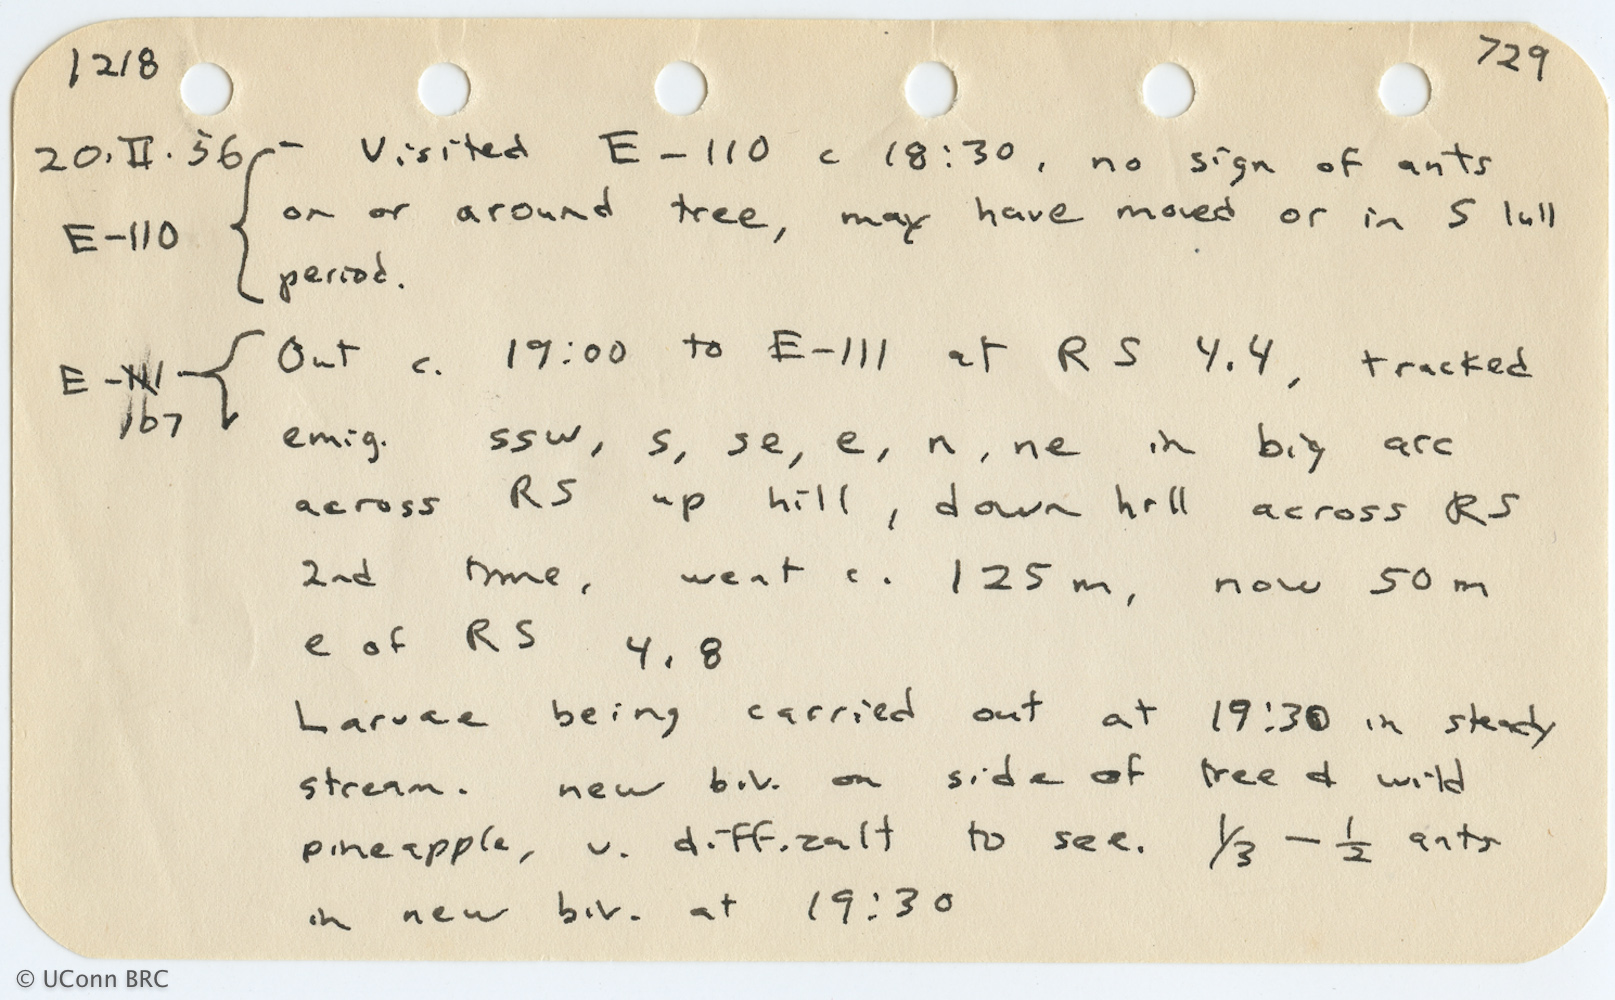 1218 729
20.II.56 - Visited E-110 c 18:30, no sign of ants
on or around tree, may have moved or in S lull
E-110
period.
Out c. 19:00 to E-111 at RS 4.4, tracked
E-111
107
emig. ssw, s, se, e, n, ne in big arc
across RS up hill, down hill across RS
2nd time, went c. 125 m, now 50 m
e of RS 4.8
Larvae being carried out at 19:30 in steady
stream. new biv. on side of tree & wild
pineapple, v. difficult to see. 1/3 - 1/2 ants
in new biv. at 19:30
© UConn BRC